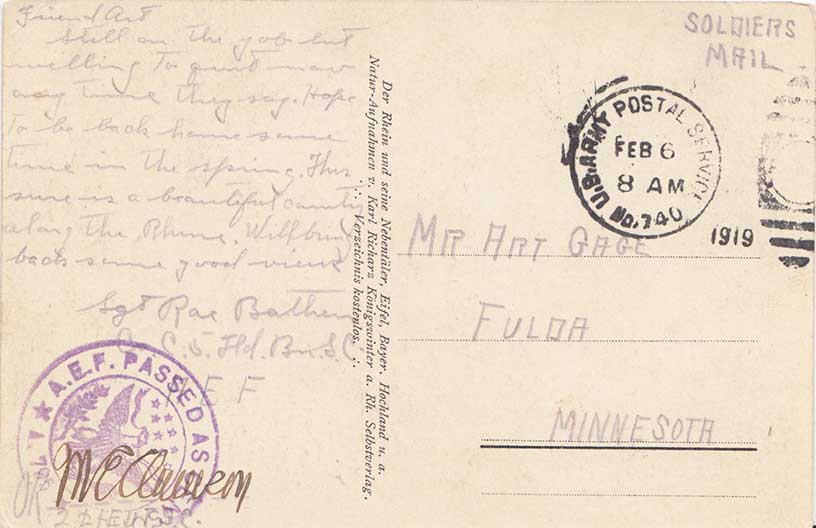 Friend Art
Still on the job but
willing to quit now
any time they say. Hope
to be back home some
time in the spring. This
sure is a beautiful
along the Rhine. Will
back some good views
Sgt Rae
C. 5. Fld. Bn. S.C.
A E F
A.E.F. PASSED AS
OK
Der Rhein und seine Nebentäler, Eifel, Bayer. Hochland u. a.
Natur-Aufnahmen v. Karl Richarz Königswinter a. Rh. Selbstverlag.
.·. Verzeichnis kostenlos. .·.
SOLDIERS
MAIL
U.S. ARMY POSTAL SERVICE
FEB 6
8 AM
No. 740
1919
MR ART GAGE
FULDA
MINNESOTA